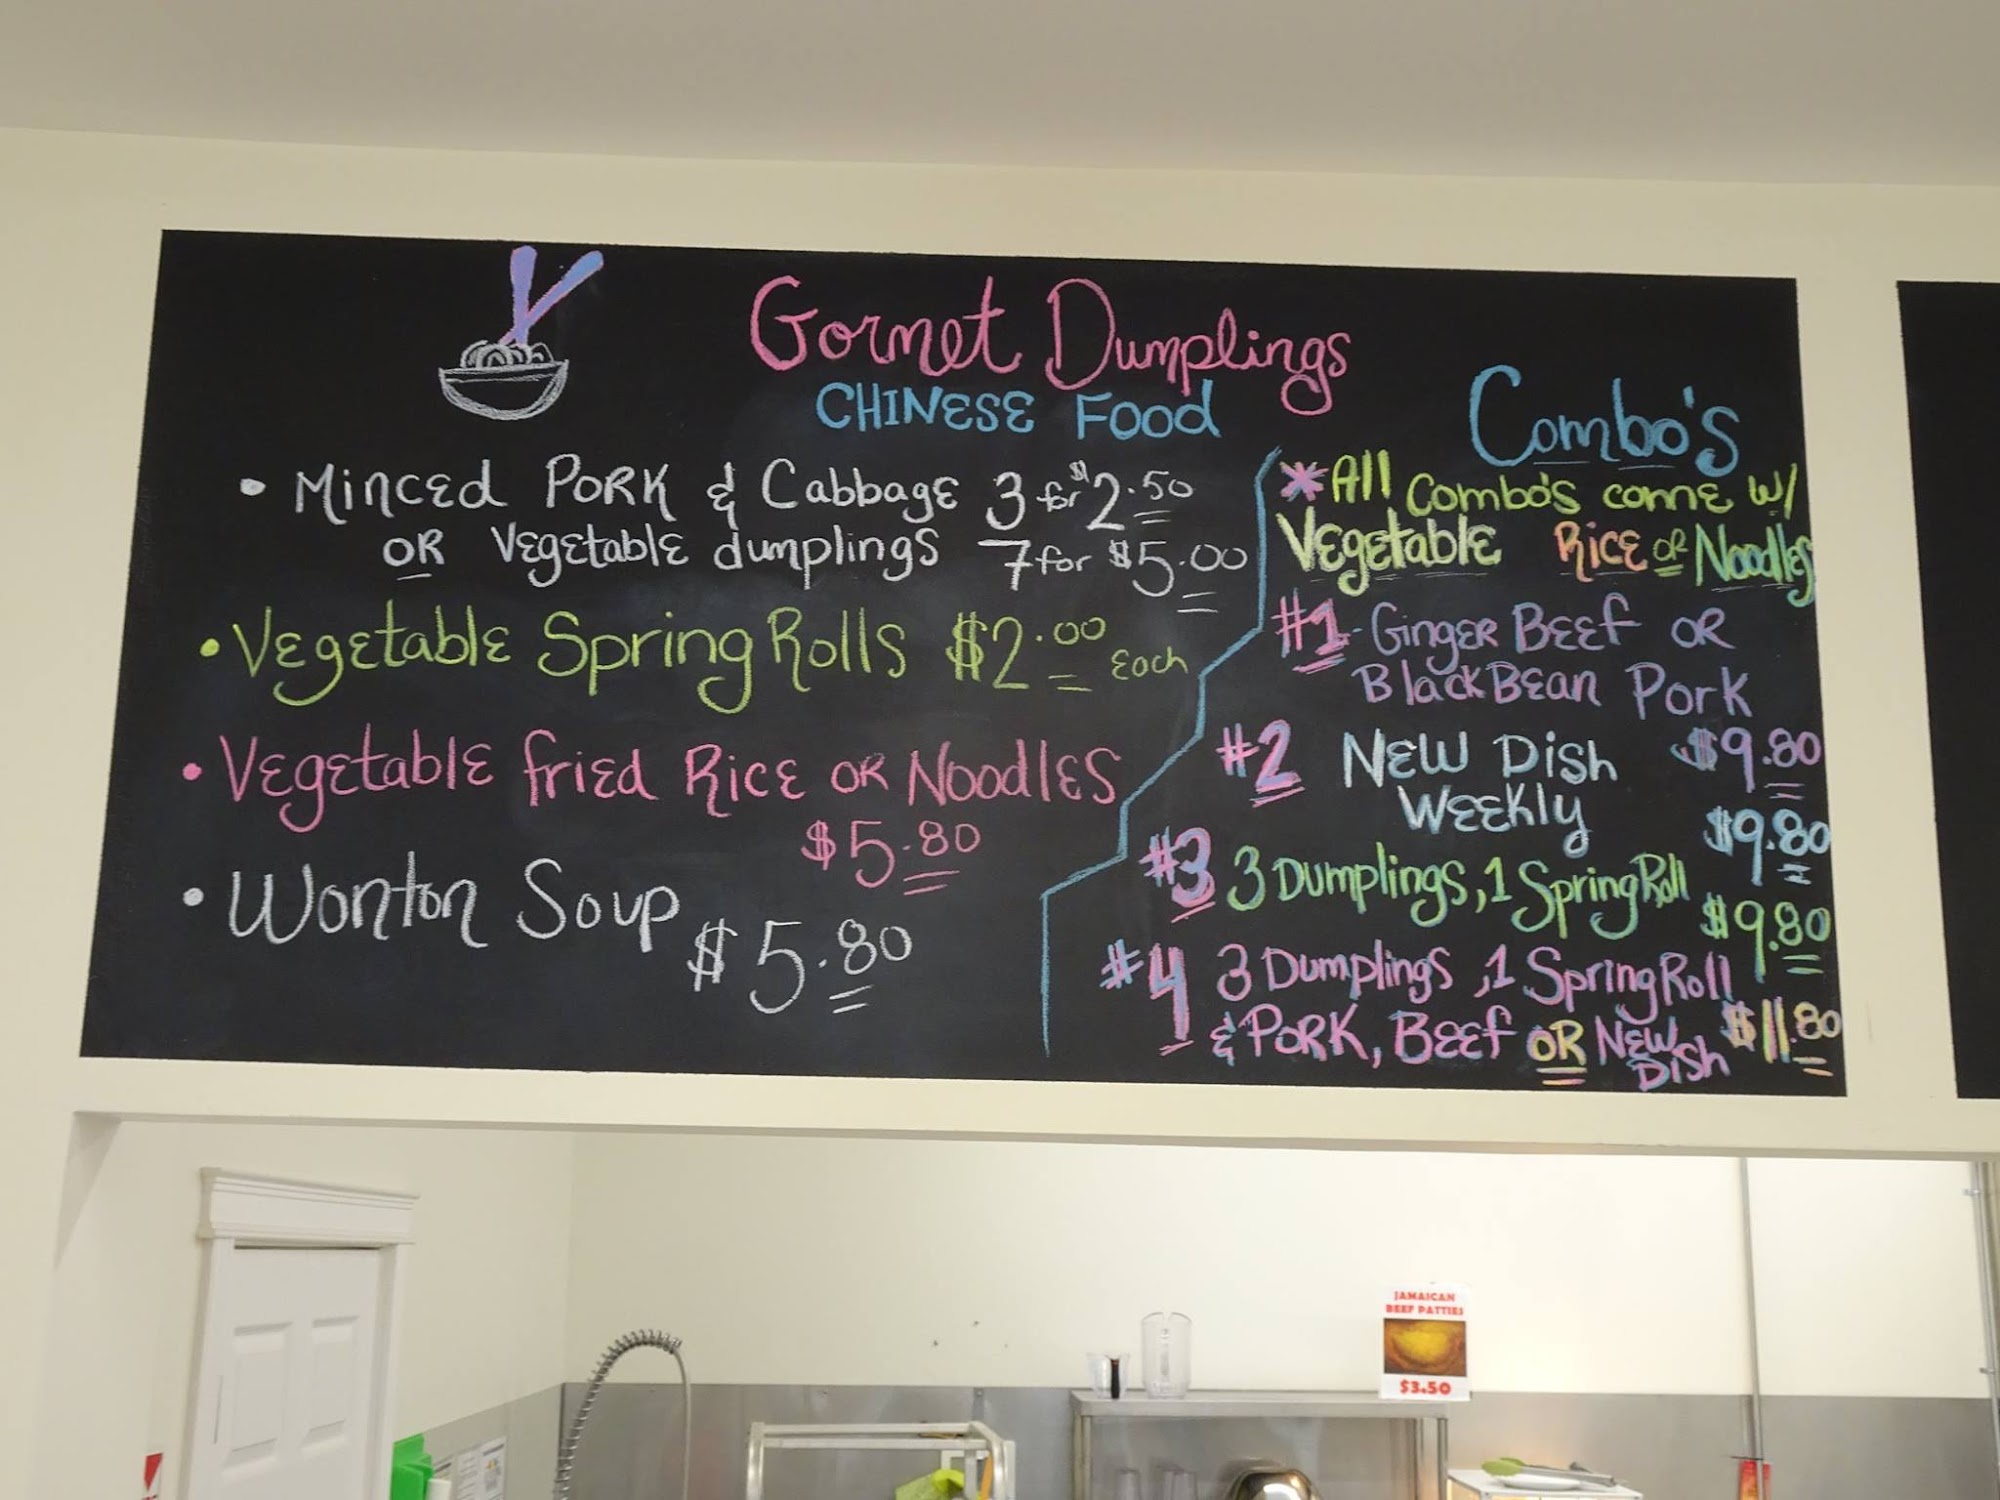 Gornet Dumplings
CHINESE FOOD
• Minced Pork & Cabbage 3 for $2.50
OR Vegetable dumplings 7 for $5.00
• Vegetable Spring Rolls $2.00 Each
• Vegetable fried Rice OR Noodles
$5.80
• Wonton Soup
$5.80
Combo's
*All Combo's come w/
Vegetable Rice or Noodles
#1 - Ginger Beef OR
Black Bean Pork
$9.80
#2 New Dish
Weekly
$9.80
#3 3 Dumplings, 1 Spring Roll
$9.80
#4 3 Dumplings, 1 Spring Roll
& Pork, Beef OR New Dish $11.80
JAMAICAN
BEEF PATTIES
$3.50